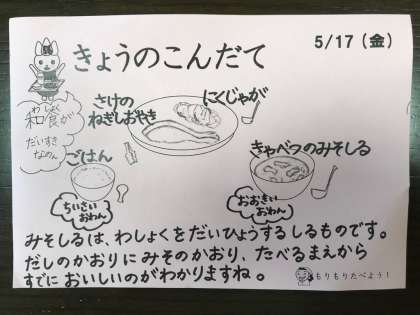 きょうのこんだて
5/17（金）
わしょく
和食が
だいすき
なのん
さけの
ねぎしおやき
にくじゃが
ごはん
ちいさい
おわん
きゃべつのみそしる
おおきい
おわん
みそしるは、わしょくをだいひょうするしるものです。
だしのかおりにみそのかおり、たべるまえから
すでにおいしいのがわかりますね。
もりもりたべよう！